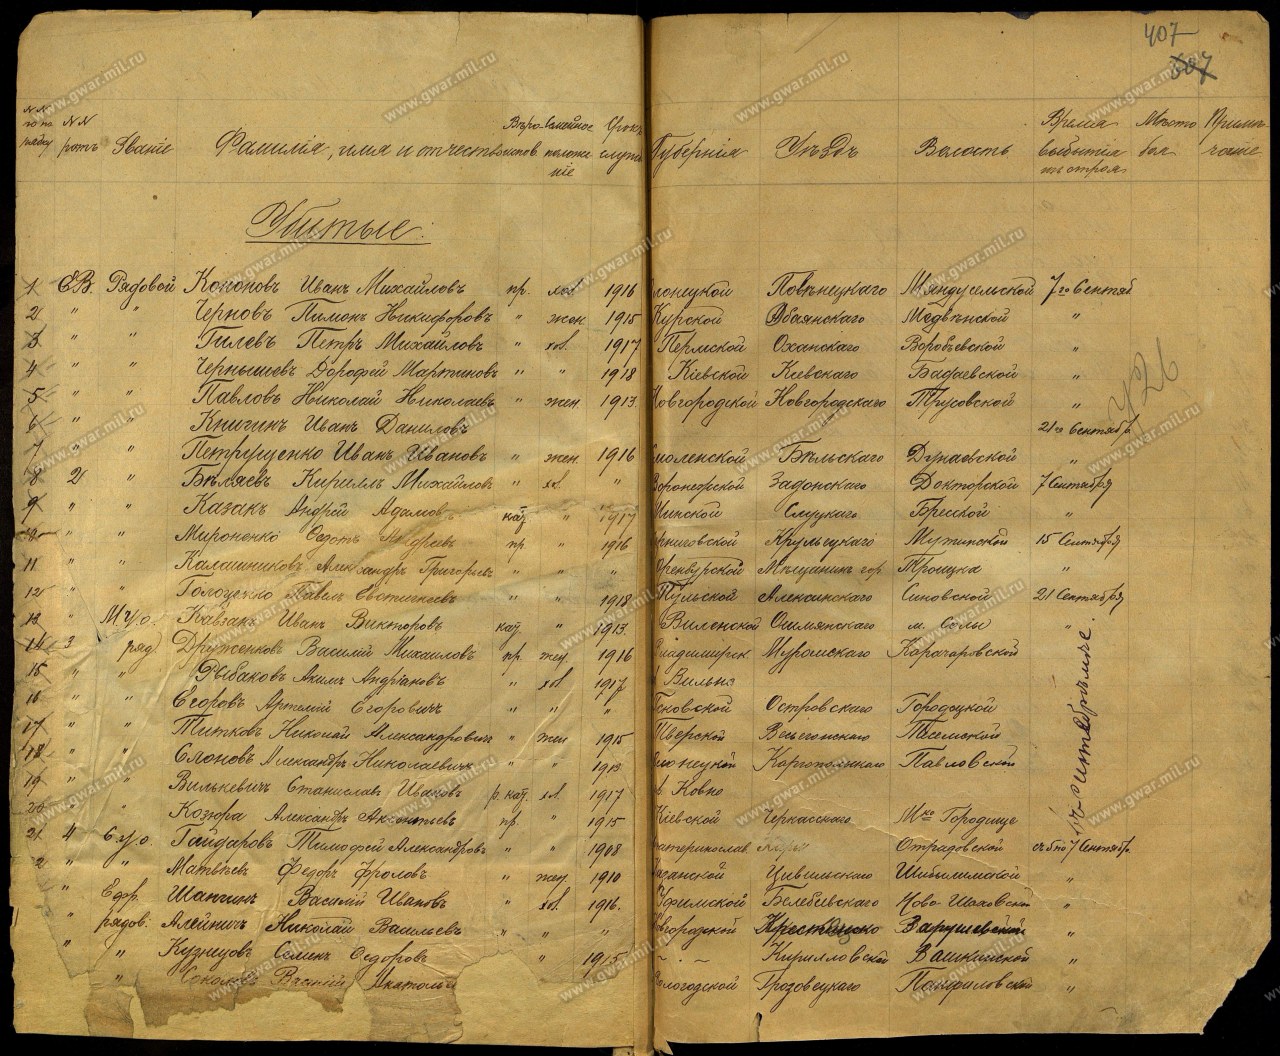 407
507
NN по по рядку NN ротъ Званіе Фамилія, имя и отчество Вѣро исповѣд. Семейное положеніе Срокъ службы Губернія Уѣздъ Волость Время событія Мѣсто боя Примѣчаніе
Убитые.
1 ЕВ. Рядовой Кононовъ Иванъ Михайловъ пр. хол 1916 лонецкой Повѣнецкаго Мяндусельской 7го Сентяб
2 " " Черновъ Пимонъ Никифоровъ " жен 1915 Курской Обаянскаго Медвѣнской "
3 " " Гилевъ Петръ Михайловъ " хол. 1917 Пермской Оханскаго Воробьевской "
4 " " Чернышевъ Дорофей Мартиновъ " " 1918 Кіевской Кіевскаго Бадаевской "
5 " " Павловъ Николай Николаевъ " жен 1913 Новгородской Новгородскаго Трусовской "
6 " " Книгинъ Иванъ Даниловъ 21го Сентябр
7 " " Петрущенко Иванъ Ивановъ " жен. 1916 моленской Бѣльскаго Дунаевской "
8 2 " Бѣляевъ Кириллъ Михайловъ " хол " Воронежской Задонскаго Докторской 7 Сентября
9 " " Казакъ Андрей Адамовъ кат " 1917 Минской Слуцкаго Греской "
10 " " Мироненко Федотъ Андреевъ пр " 1916 ерниговской Кролевецкаго Мутинской 15 Сентября
11 " " Калашниковъ Александръ Григорьевъ " " " Оренбургской Мѣщанинъ гор. Троицка "
12 " " Голощечко Павелъ " " 1918 Тульской Алексинскаго Синовской 21 Сентября
13 " М.у/о. Кавзанъ Иванъ Викторовъ кат " 1913. Виленской Ошмянскаго м. Солы "
14 3 ряд. Друженковъ Василій Михаиловъ пр. жен 1916 Владимирск Муромскаго Карачаровской
15 " " Рыбаковъ Акимъ Андріановъ " хол 1917 г Вильна
16 " " Егоровъ Артемій Егоровичъ " " " Псковской Островскаго Городецкой
17 " " Титковъ Николай Александровичъ " жен 1915 Тверской Весьегонскаго Телемской
18 " " Слоновъ Александръ Николаевичъ " " 1913 Олонецкой Каргопольскаго Павловской
19 " " Вилькевичъ Станиславъ Ивановъ р. кат. хол. 1917 г. Ковно
20 " " Козюра Александръ Аксентьевъ пр. " 1915 Кіевской Черкасскаго Мко Городище
21 4 Е.у/о. Гайдаровъ Тимофей Александровъ " " 1908 катеринослав Отрадовской съ 6 по 7 Сентябр.
22 " " Матвѣевъ Федоръ Фроловъ " жен 1910 Казанской Цивильскаго "
" Ефр. Шангинъ Василій Ивановъ " хол. 1916. Уфимской Белебеевскаго Ново-Шаховской "
" рядов. Алейничъ Николай Васильевъ " " " Новгородской Крестецко Зарушевской "
" " Кузнецовъ Семенъ Федоровъ " 1915 - " - Кирилловской Вашкинской "
" Соколовъ Василій Анатольи Вологодской Грязовецкаго Панфиловской "
15 Сентября
426
www.gwar.mil.ru